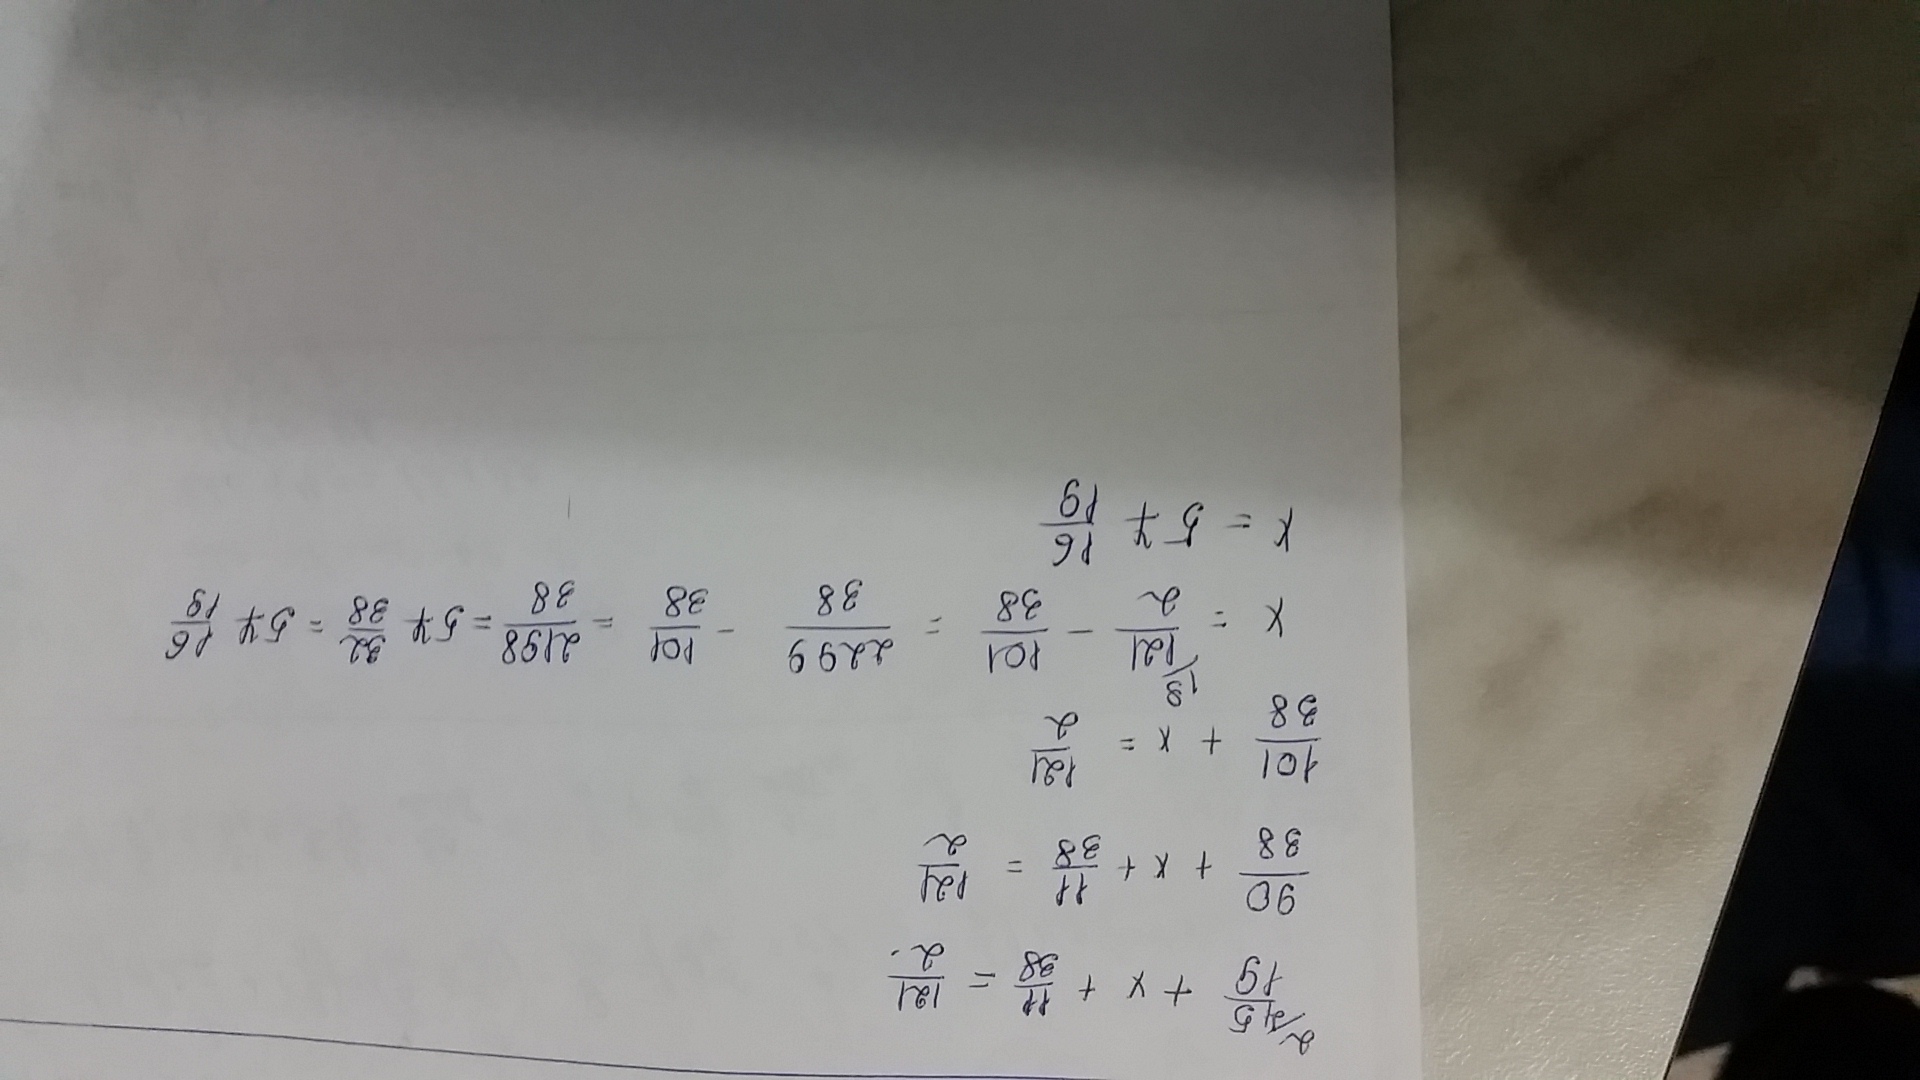 ²⁄ 45/19 + x + 11/38 = 121/2.
90/38 + x + 11/38 = 121/2
101/38 + x = 121/2
x = ¹⁹⁄ 121/2 - 101/38 = 2299/38 - 101/38 = 2198/38 = 57 32/38 = 57 16/19
x = 57 16/19